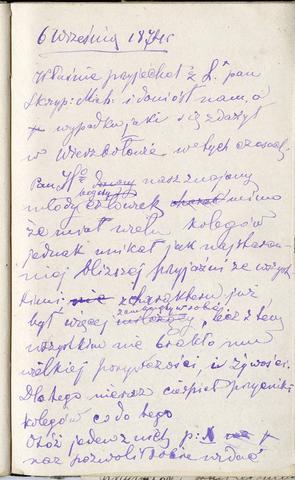 6 Września 1874 r
Właśnie przyjechał z S. pan
i doniósł nam, o
wypadku jaki się zdarzył
w Wierzbołowie w tych czasach,
Pan nasz znajomy
bogaty
młody człowiek mimo
że miał wielu kolegów
jednak unikał jak najstaran
niej bliższej przyjaźni ze wszyst
kimi nie z charakteru już
być więcej lecz z tem
wszystkiem nie brakło mu
wielkiej porywczości, i żywości.
Dlatego nieraz cierpiał przycinki
kolegów co do tego
Otóż jeden z nich p.
raz pozwolił sobie wydać